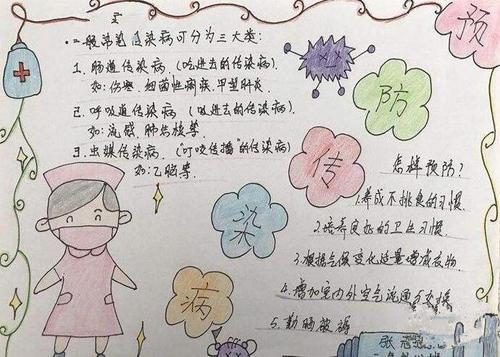 预
防
传
染
病
一般常见传染病可分为三大类:
1、肠道传染病.(吃进去的传染病).
如:伤寒.细菌性痢疾.甲型肝炎.
2.呼吸道传染病(吸进去的传染病).
如:流感.肺结核等.
3.虫媒传染病.("叮咬传播"的传染病)
如:乙脑等.
怎样预防?
1.养成不挑食的习惯.
2.培养良好的卫生习惯.
3.根据气候变化适量增减衣物.
4.增加室内外空气流通与交换
5.勤晒被褥